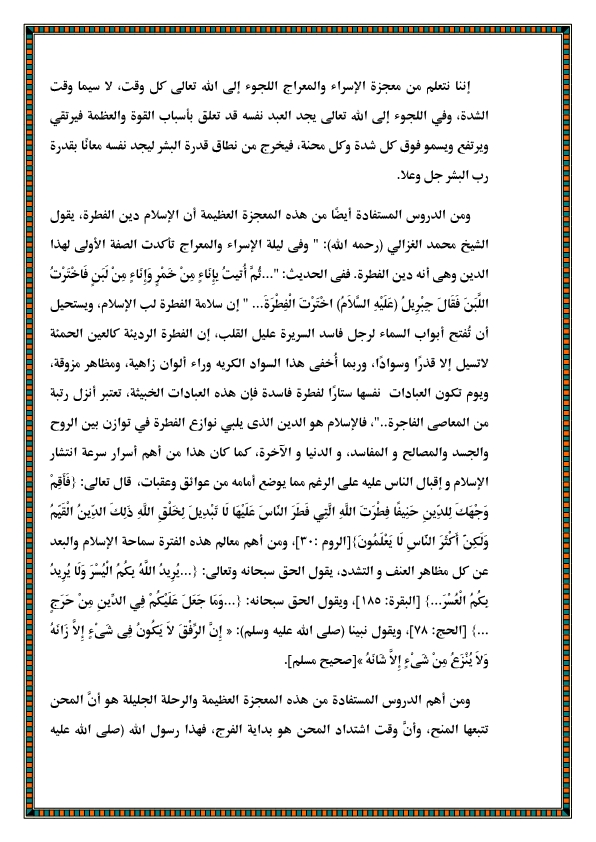 إننا نتعلم من معجزة الإسراء والمعراج اللجوء إلى الله تعالى كل وقت، لا سيما وقت
الشدة، وفي اللجوء إلى الله تعالى يجد العبد نفسه قد تعلق بأسباب القوة والعظمة فيرتقي
ويرتفع ويسمو فوق كل شدة وكل محنة، فيخرج من نطاق قدرة البشر ليجد نفسه معانًا بقدرة
رب البشر جل وعلا.
ومن الدروس المستفادة أيضًا من هذه المعجزة العظيمة أن الإسلام دين الفطرة، يقول
الشيخ محمد الغزالي (رحمه الله): " وفى ليلة الإسراء والمعراج تأكدت الصفة الأولى لهذا
الدين وهى أنه دين الفطرة. ففى الحديث: "...ثُمَّ أُتيتُ بِإِنَاءٍ مِنْ خَمْرٍ وَإِنَاءٍ مِنْ لَبَنٍ فَاخْتَرْتُ
اللَّبَنَ فَقَالَ جِبْرِيلُ (عَلَيْهِ السَّلَامُ) اخْتَرْتَ الْفِطْرَةَ... " إن سلامة الفطرة لب الإسلام، ويستحيل
أن تُفتح أبواب السماء لرجل فاسد السريرة عليل القلب، إن الفطرة الرديئة كالعين الحمئة
لاتسيل إلا قذرًا وسوادًا، وربما أُخفى هذا السواد الكريه وراء ألوان زاهية، ومظاهر مزوقة،
ويوم تكون العبادات نفسها ستارًا لفطرة فاسدة فإن هذه العبادات الخبيثة، تعتبر أنزل رتبة
من المعاصى الفاجرة..."، فالإسلام هو الدين الذى يلبي نوازع الفطرة في توازن بين الروح
والجسد والمصالح و المفاسد، و الدنيا و الآخرة، كما كان هذا من أهم أسرار سرعة انتشار
الإسلام و إقبال الناس عليه على الرغم مما يوضع أمامه من عوائق وعقبات، قال تعالى: {فَأَقِمْ
وَجْهَكَ لِلدِّينِ حَنِيفًا فِطْرَتَ اللَّهِ الَّتِي فَطَرَ النَّاسَ عَلَيْهَا لَا تَبْدِيلَ لِخَلْقِ اللَّهِ ذَلِكَ الدِّينُ الْقَيِّمُ
وَلَكِنَّ أَكْثَرَ النَّاسِ لَا يَعْلَمُونَ}[الروم :٣٠]، ومن أهم معالم هذه الفترة سماحة الإسلام والبعد
عن كل مظاهر العنف و التشدد، يقول الحق سبحانه وتعالى: {...يُرِيدُ اللَّهُ بِكُمُ الْيُسْرَ وَلَا يُرِيدُ
بِكُمُ الْعُسْرَ...} [البقرة: ١٨٥]، ويقول الحق سبحانه: {...وَمَا جَعَلَ عَلَيْكُمْ فِي الدِّينِ مِنْ حَرَجٍ
...} [الحج: ٧٨]، ويقول نبينا (صلى الله عليه وسلم): « إِنَّ الرِّفْقَ لاَ يَكُونُ فِى شَىْءٍ إِلاَّ زَانَهُ
وَلاَ يُنْزَعُ مِنْ شَىْءٍ إِلاَّ شَانَهُ »[صحيح مسلم].
ومن أهم الدروس المستفادة من هذه المعجزة العظيمة والرحلة الجليلة هو أنَّ المحن
تتبعها المنح، وأنَّ وقت اشتداد المحن هو بداية الفرج، فهذا رسول الله (صلى الله عليه